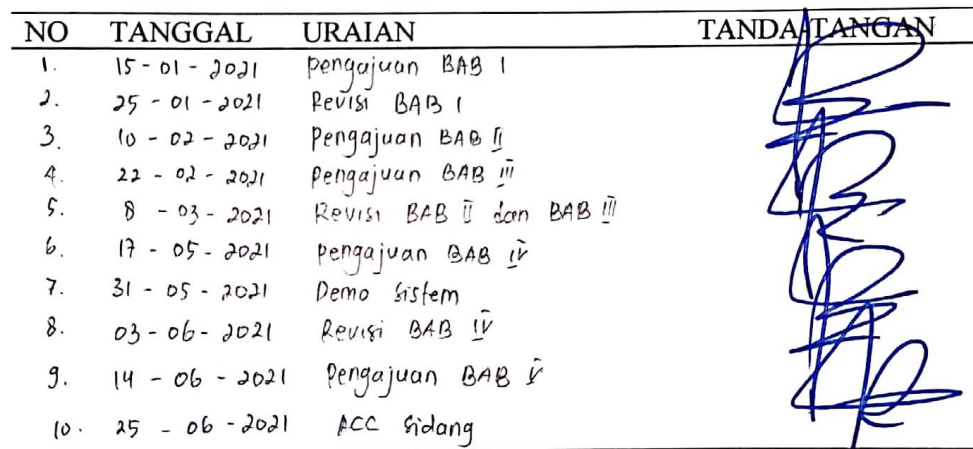 NO TANGGAL URAIAN TANDA TANGAN
1. 15-01-2021 pengajuan BAB I
2. 25-01-2021 Revisi BAB I
3. 10-02-2021 Pengajuan BAB II
4. 22-02-2021 Pengajuan BAB III
5. 8-03-2021 Revisi BAB II dan BAB III
6. 17-05-2021 pengajuan BAB IV
7. 31-05-2021 Demo Sistem
8. 03-06-2021 Revisi BAB IV
9. 14-06-2021 Pengajuan BAB V
10. 25-06-2021 ACC Sidang